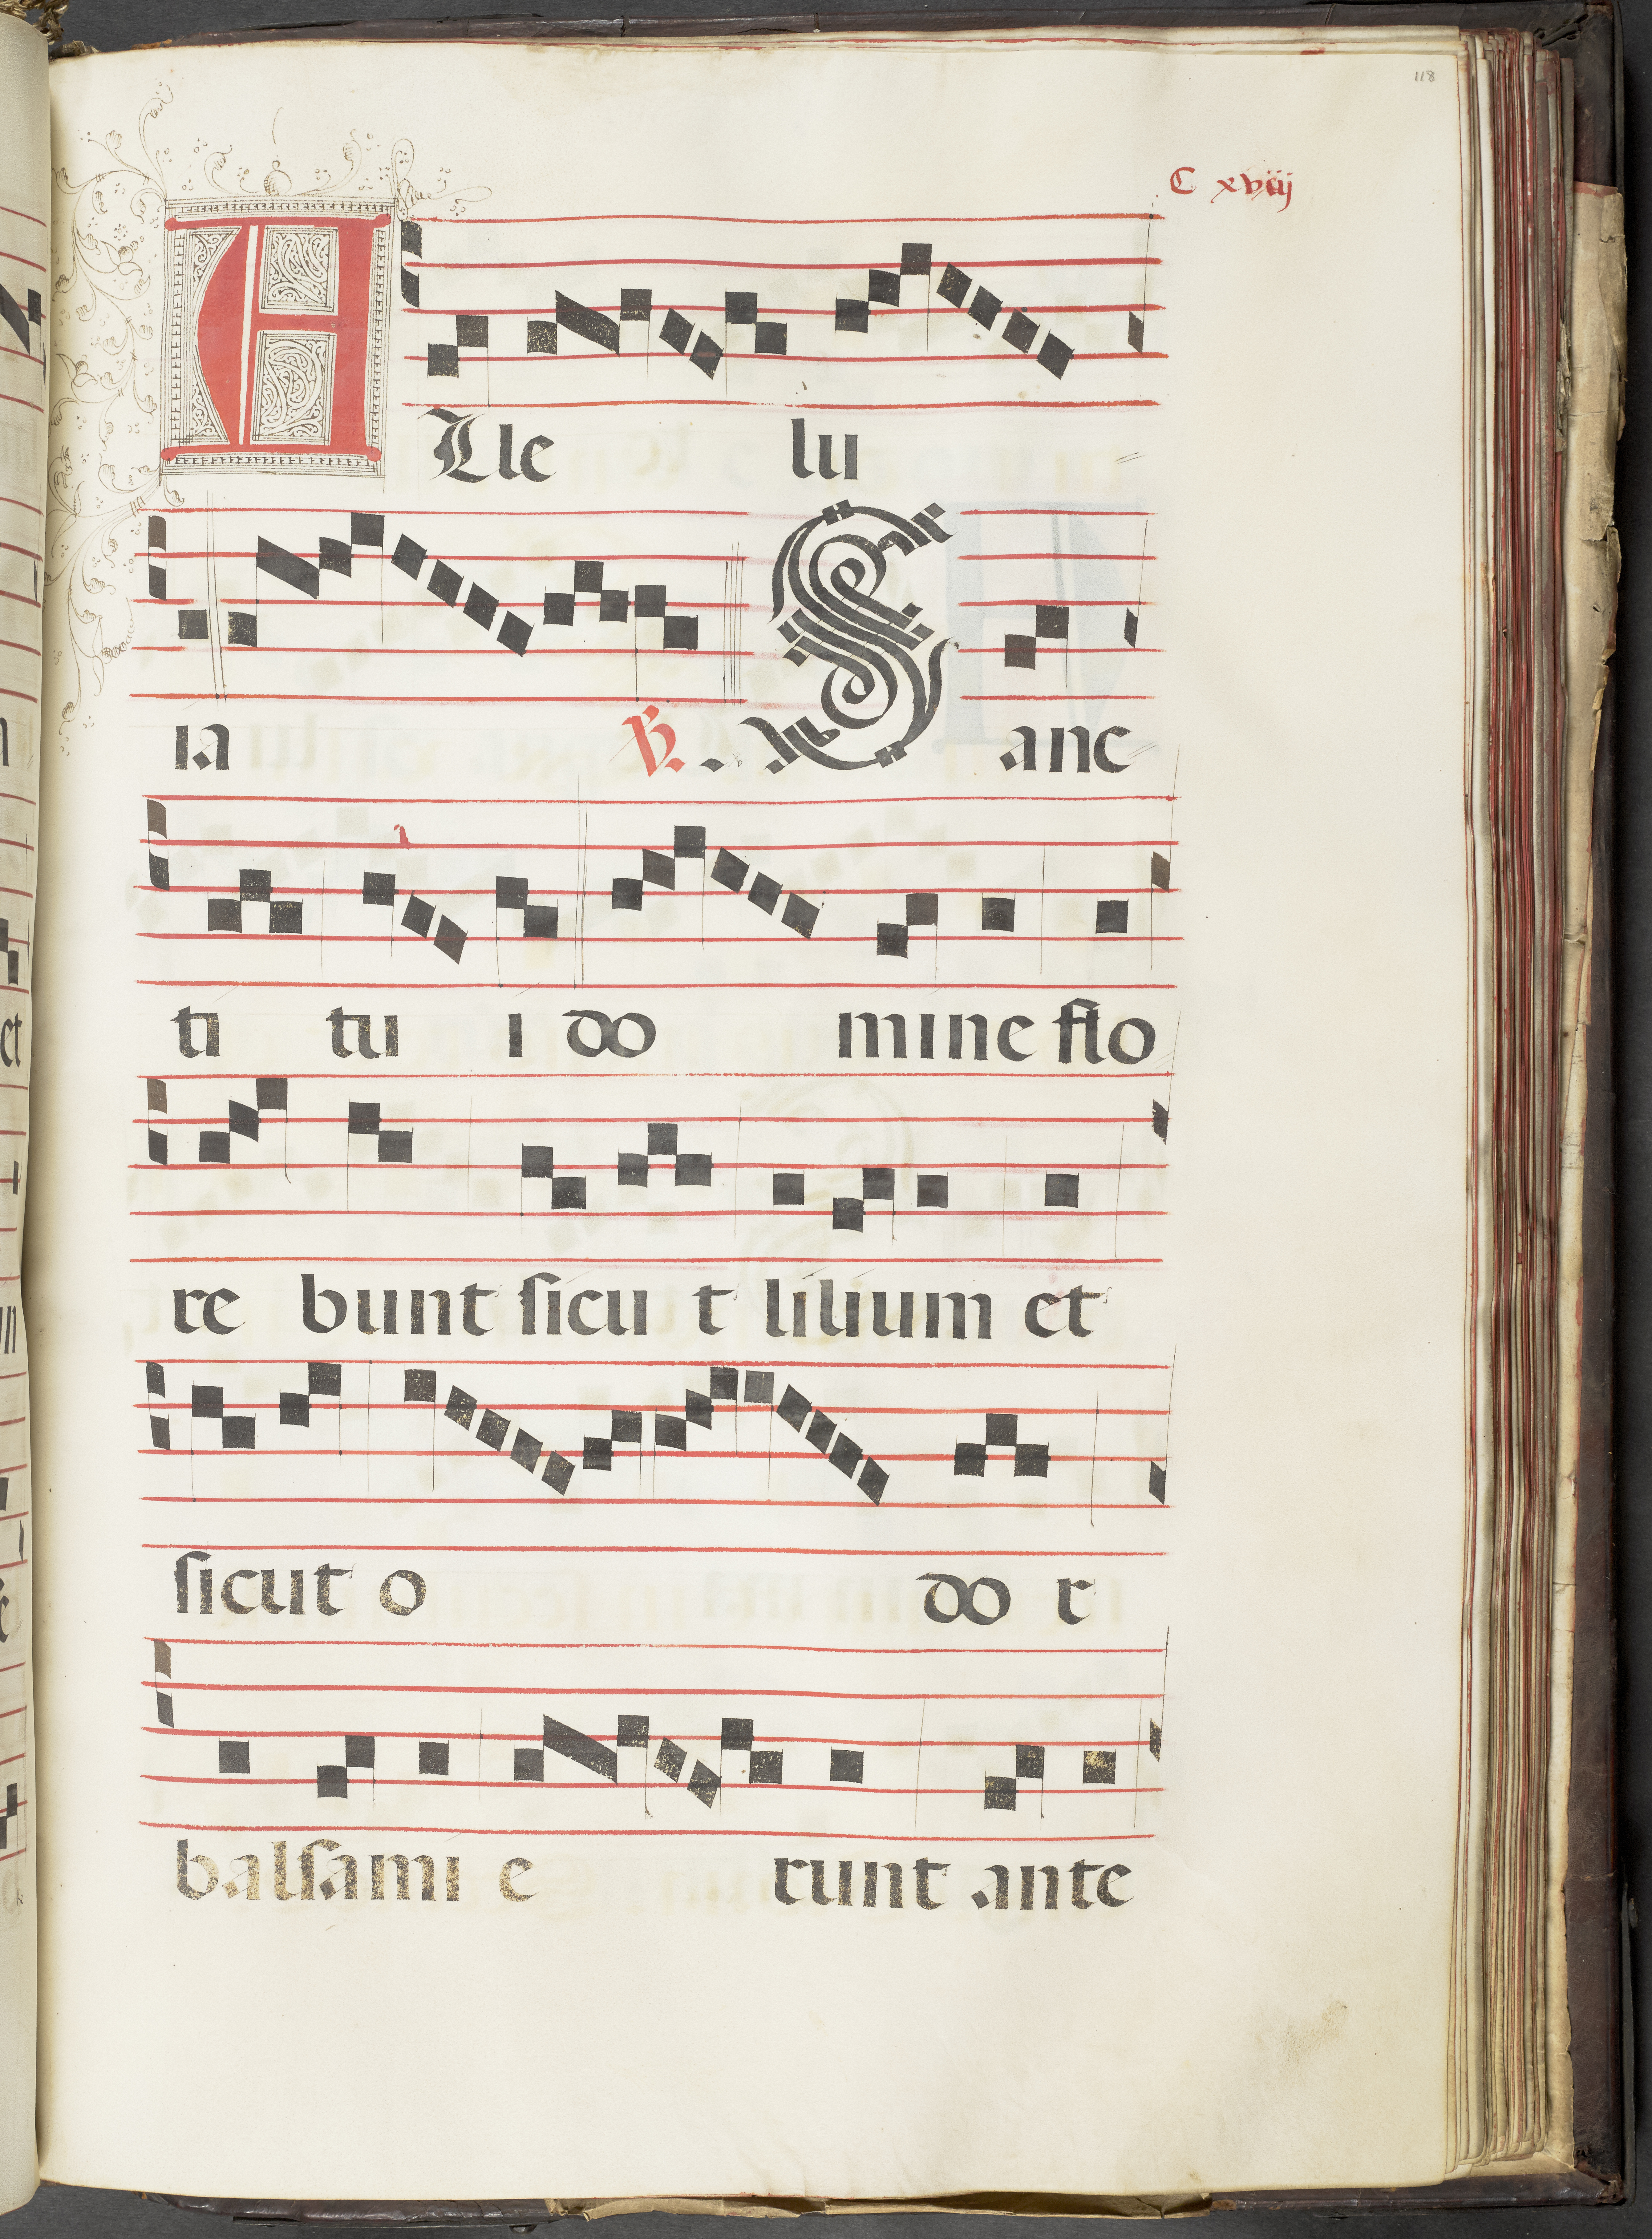 118
C xviij
ALle lu
ia ℣. Sanc
ti tu i do mine flo
re bunt ſicu t lilium et
ſicut o do r
balſami e runt ante